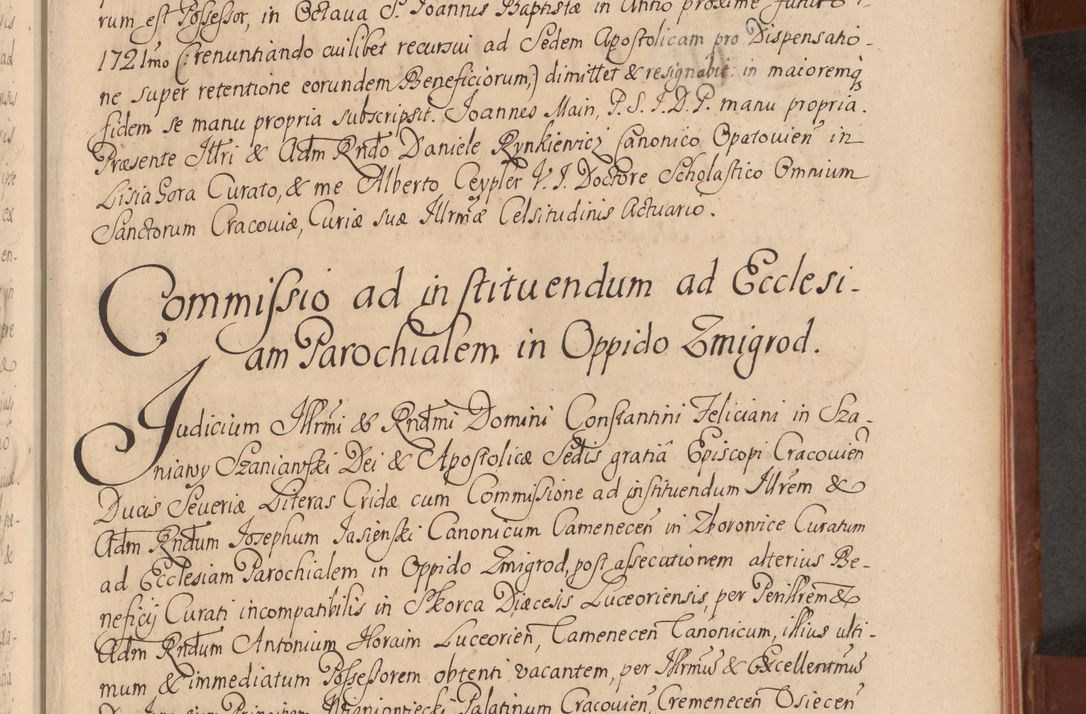 rum est Possessor, in Octava S. Joannis Baptistæ in Anno proxime futuro
1721mo (: renuntiando cuilibet recursui ad Sedem Apostolicam pro Dispensatio-
ne super retentione eorundem Beneficiorum,) dimittet & resignabit: in maioremq
fidem se manu propria subscripsit. Joannes Main, P. S. J. D. P. manu propria.
Præsente Illri & Adm Rndo Daniele Rynkiewicz Canonico Opatovien in
Lisia Gora Curato, & me Alberto Ceypler V. J. Doctore Scholastico Omnium
Sanctorum Cracoviæ, Curiæ suæ Illrmæ Celsitudinis Actuario.
Commissio ad instituendum ad Ecclesi-
am Parochialem in Oppido Zmigrod.
Judicium Illrmi & Rndmi Domini Constantini Feliciani in Sza-
niawy Szaniawski Dei & Apostolicæ Sedis gratiâ Episcopi Cracovien
Ducis Severiæ Literas Cridæ cum Commissione ad instituendum Illrem &
Adm Rndum Josephum Jasienski Canonicum Camenecen in Zborowice Curatum
ad Ecclesiam Parochialem in Oppido Zmigrod, post assecutionem alterius Be-
neficij Curati incompatibilis in Skorca Diæcesis Luceoriensis, per Perillrem &
Adm Rndum Antonium Horaim Luceorien, Camenecen Canonicum, illius ulti-
mum & immediatum Possessorem obtenti vacantem, per Illrmus & Excellentmus
Palatinum Cracovien, Cremenecen Osiecen